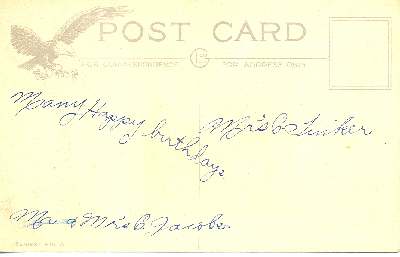 POST CARD
FOR CORRESPONDENCE
FOR ADDRESS ONLY
Many Happy birthdays
Mrs C Linker
Mrs C. Jacobs